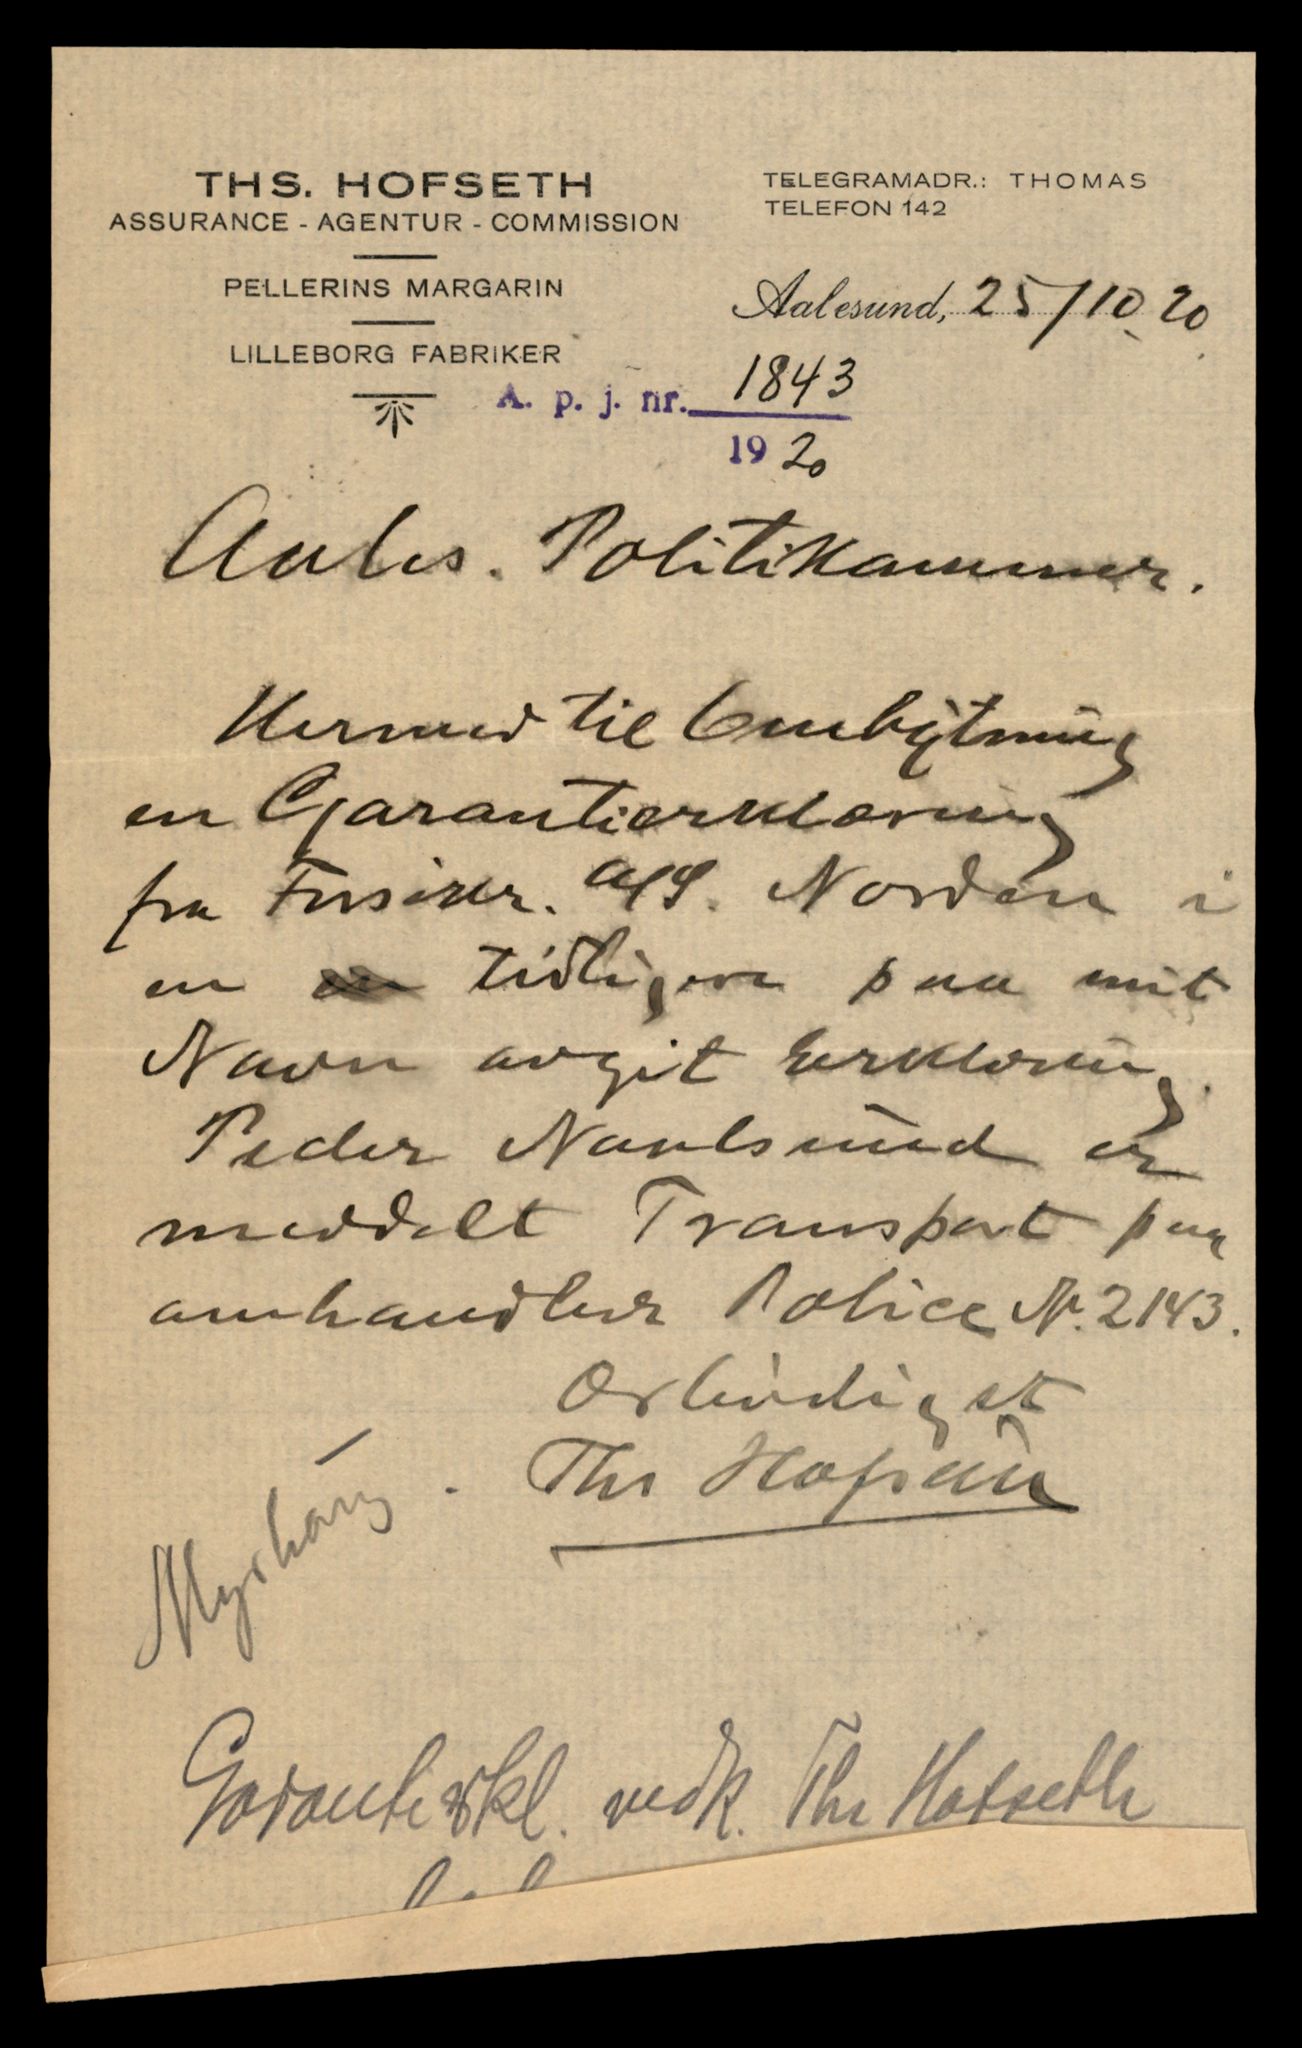 THS. HOFSETH
ASSURANCE - AGENTUR - COMMISSION
PELLERINS MARGARIN
LILLEBORG FABRIKER
TELEGRAMADR.: THOMAS
TELEFON 142
Aalesund, 25/10 20
A. p. j. nr. 1843
1920
Aales. Politikammer.
Hermed til Ombytning
en Garantierklæring
fra Forsikr. A/S. Norden i
en tidligere paa mit
Navn avgit Erklæring.
Peder Naalsund er
meddelt Transport paa
omhandlede Police Nr. 2143.
Ærbødigst
Ths Hofseth
Garantierkl. vedk. Ths Hofseth